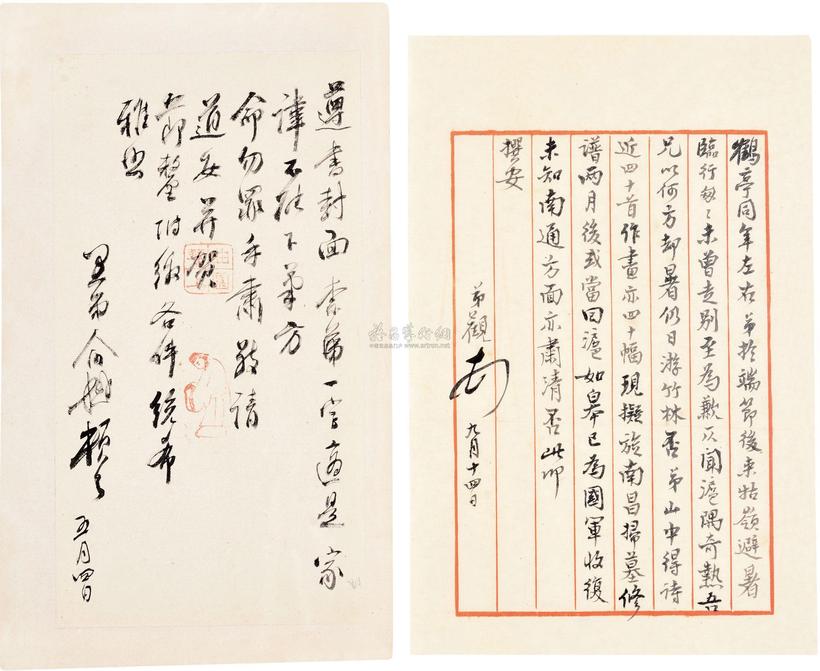 鶴亭同年左右弟於端節後來牯嶺避暑
臨行匆〻未曾走別至為歉仄聞滬隅奇熱吾
兄以何方却暑仍日游竹林否弟山中得詩
近四十首作畫亦四十幅現擬旋南昌掃墓修
譜兩月後或當回滬如皋已為國軍收復
未知南通方面亦肅清否此叩
撰安
弟觀 九月十四日
遵書封面 第一字適是家
諱不能下筆方
命勿罪手肅敬請
道安并賀
節釐附繳各件統希
雅照
頓首 五月四日